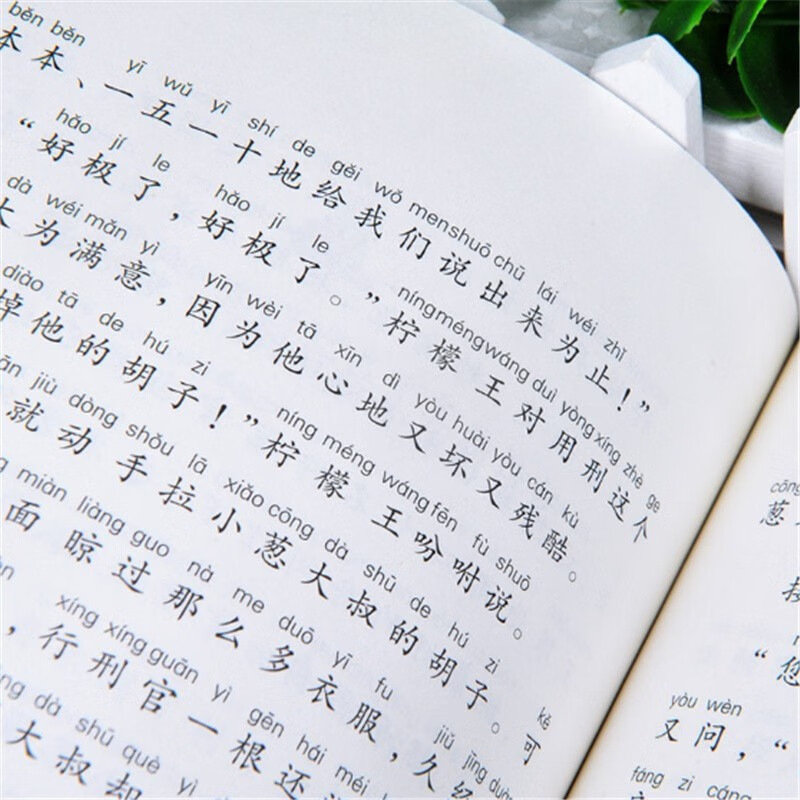 běn běn yī wǔ yī shí de gěi wǒ menshuō chū lái wéi zhǐ
本本、一五一十地给我们说出来为止！”
hǎo jí le hǎo jí le níngméngwáng duì yòng xíng zhè ge
“好极了，好极了。”柠檬王对用刑这个
dà wéi mǎn yì yīn wèi tā xīn dì yòu huài yòu cán kù
大为满意，因为他心地又坏又残酷。
diào tā de hú zi níng méng wáng fēn fù shuō
掉他的胡子！”柠檬王吩咐说。
jiù dòng shǒu lā xiǎo cōng dà shū de hú zi kě
就动手拉小葱大叔的胡子。可
miàn liàng guo nà me duō yī fu jiǔ jīng
面晾过那么多衣服，久经
xíng xíng guān yì gēn hái méi
，行刑官一根还没
dà shū què yì
大叔却
cōng
葱
“您
yòu wèn
又问，“
fáng zi cáng